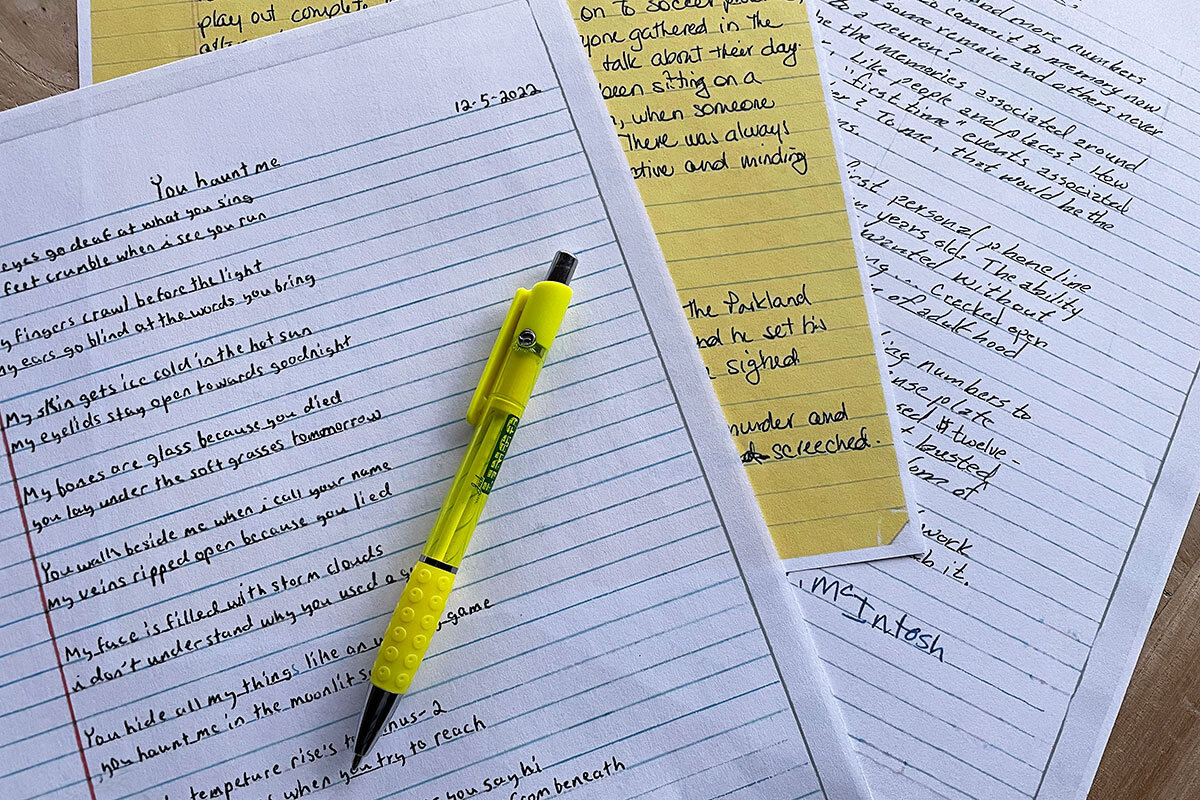 12-5-2022
You haunt me
eyes go deaf at what you sing
feet crumble when i see you run
fingers crawl before the light
my ears go blind at the words you bring
My skin gets ice cold in the hot sun
my eyelids stay open towards goodnight
My bones are glass because you died
you lay under the soft grasses tommorrow
You walk beside me when i call your name
my veins ripped open because you lied
My face is filled with storm clouds
i don't understand why you used a
You hide all my things like an game
you haunt me in the moonlit
tempeture rise's -2
when you try to reach
you say hi
from beneath
play out complete
on to soccer
gathered in the
talk about their day.
been sitting on a
when someone
There was always
and minding
the Parkland
he set his
sighed
murder and
screeched.
and more numbers
to commit to memory now
source remain and others never
to a neuron?
the memories associated around
Like people and places? How
"first time" events associated
? To me, that would be the
first personal phoneline
years old. The ability
without
cracked open
of adulthood
numbers to
plate
$ twelve-
busted
of
work
it.
McIntosh